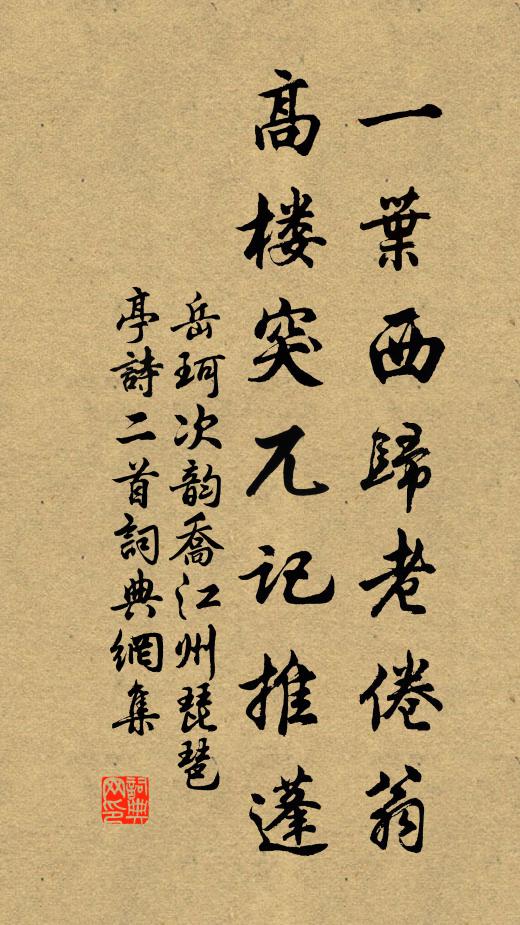 一葉西歸老倦翁
高楼突兀記推蓬
岳珂次韵喬江州琵琶
亭詩二首詞典網集
詞典
网印